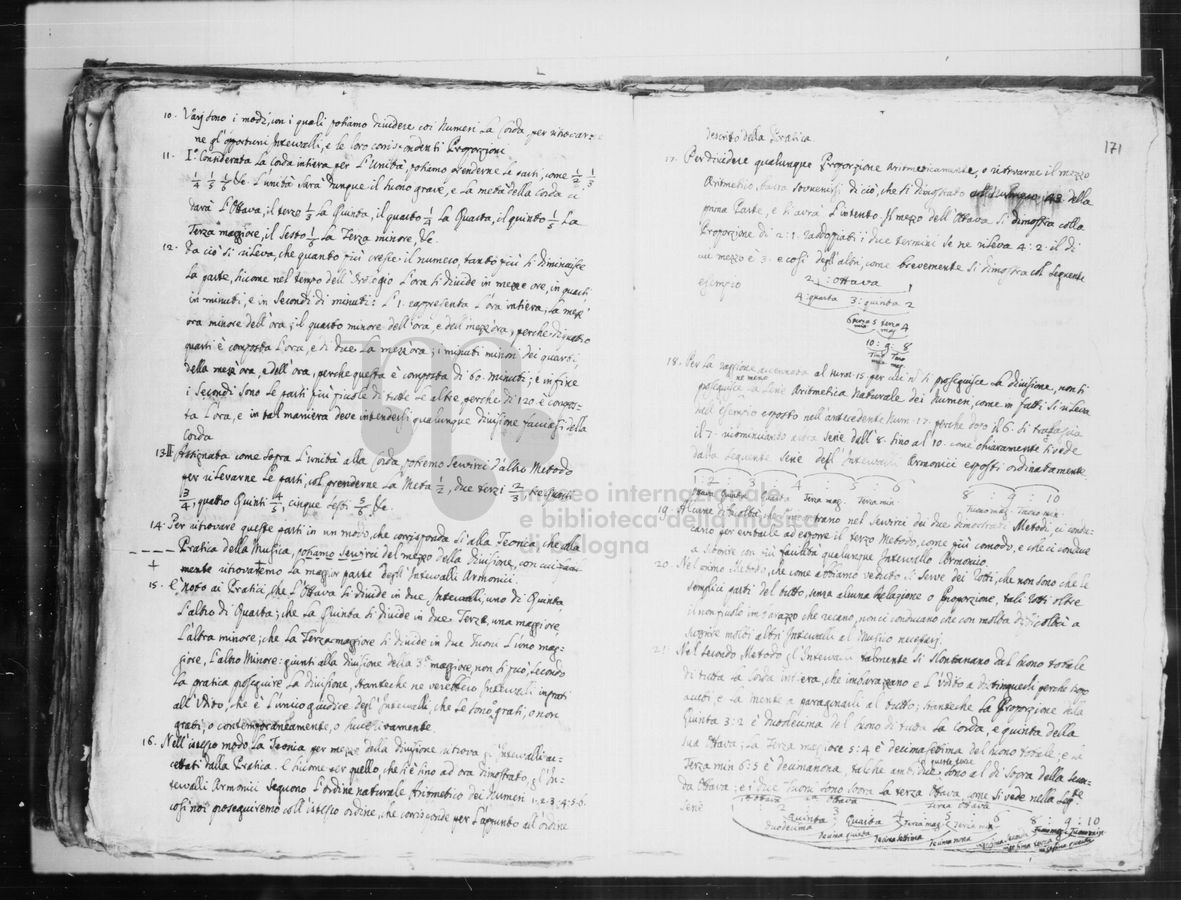 10. Varj sono i modi, con i quali potiamo dividere coi Numeri La Corda, per ritrovar
ne gl'opportuni Intervalli, e le loro corrispondenti Proporzioni
11. Considerata La Corda intiera per L'unità, potiamo prenderne Le parti, come 1/2 1/3
1/4 1/5 1/6 &c. L'unità sarà dunque il suono grave, e La metà della Corda ci
darà L'Ottava, il terzo 1/3 La Quinta, il quarto 1/4 La Quarta, il quinto 1/5 La
Terza maggiore, il Sesto 1/6 La Terza minore, &c.
12. Da ciò si rileva, che quanto più cresce il numero, tanto più si diminuisce
La parte, siccome nel tempo dell'Orologio L'ora si divide in mezze ore, in quarti
in minuti, e in Secondi di minuti: L'1. rappresenta L'ora intiera; La mezz'
ora minore dell'ora; il quarto minore dell'ora, e dell'mezz'ora; perche di quatro
quarti è composta L'ora, e di due La mezz'ora; i minuti minori dei quarti,
della mezz'ora, e dell'ora, perche questa è composta di 60. minuti; e in fine
i Secondi sono Le parti più picciole di tutte Le altre, perche di 120 è compos-
ta L'ora, e in tal maniera deve intendersi qualunque divisione facciasi della
Corda
13. Assegnata come sopra L'unità alla Corda, potremo servirci d'altro Metodo
per rilevarne Le parti, col prenderne La Metà 1/2, due terzi 2/3, tre quarti
3/4, quattro Quinti 4/5, cinque sesti 5/6 &c.
14. Per ritrovare queste parti in un modo, che corrisponda sì alla Teorica, che alla
Pratica della Musica, potiamo servirci del mezzo della divisione, con cui
mente ritrovaremo La maggior parte degl'Intervalli Armonici.
15. E' noto ai Pratici, che L'Ottava si divide in due Intervalli, uno di Quinta
L'altro di Quarta; che La Quinta si divide in due Terze, una maggiore,
L'altra minore; che La Terza maggiore si divide in due Tuoni L'uno mag-
giore, L'altro Minore: giunti alla divisione della 3a maggiore, non si può, secondo
La pratica proseguire La divisione, stanteche ne verebbero Intervalli ingrati
all'Udito, che è L'unico giudice degl'Intervalli, che Le sono grati, o non
grati, o contemporaneamente, o successivamente.
16. Nell'istesso modo, La Teorica per mezzo della divisione ritrova gl'Intervalli ac-
cettati dalla Pratica. E siccome per quello, che si è sino ad ora dimostrato, gl'In-
tervalli Armonici seguono L'ordine naturale Aritmetico dei Numeri 1. 2. 3. 4. 5. 6.
così noi proseguiremo coll'istesso ordine, che corrisponde per L'appunto all'ordine
171
descritto della Pratica
17. Per dividere qualunque Proporzione Aritmeticamente, o ritrovarne il mezzo
Aritmetico, basta sovvenirsi di ciò, che si dimostrato della
prima Parte, e si avrà L'intento. Il mezzo dell'Ottava si dimostra colla
Proporzione di 2:1. raddoppiati i due termini se ne rileva 4:2. il di
cui mezzo è 3. e così degl'altri, come brevemente si dimostra col seguente
esempio
2 : ottava 1
4 : quarta 3 : quinta 2
6 terza min 5 terza mag. 4
10 : 9 : 8
Tuo min Tuo mag
18. Per La raggione accennata al num. 15. per cui non si proseguisce La divisione, non si
proseguisce ne meno La Serie Aritmetica Naturale dei Numeri, come in fatti si rileva
nell'esempio esposto nell'antecedente Num. 17. perche dopo il 6. si tralascia
il 7. ricominciando altra Serie dall'8. fino al 10. come chiaramente si vede
dalla seguente Serie degl'Intervalli Armonici esposti ordinatamente.
1 : 2 : 3 : 4 : 5 : 6 8 9 : 10
Ottava Quinta Quarta Terza mag. Terza min Tuono mag. Tuono min.
19. Alcune difficoltà, che s'incontrano nel servirci dei due dimostrati Metodi, ci condu-
cano per evitarle ad esporre il terzo Metodo, come più comodo, e che ci conduce
a scoprire con più facilità qualunque Intervallo Armonico.
20. Nel primo Metodo, che come abbiamo veduto si serve dei Rotti, che non sono che Le
semplici parti del tutto, senza alcuna Relazione o Proporzione, tali Rotti oltre
il non picciolo imbarazzo che recano, non ci conducano che con molta difficoltà a
scoprire molti altri Intervalli al Musico necessarj.
21. Nel Secondo Metodo gl'Intervalli talmente si slontanano dal suono totale
di tutta La Corda intiera, che imbarazzano e L'Udito a distinguerli perche troppo
acuti, e La mente a paragonarli al tutto; stanteche La Proporzione della
Quinta 3:2 è duodecima del suono di tutta La Corda, e quinta della
sua Ottava; La Terza maggiore 5:4 è decimasettima del suono totale; e La
Terza min 6:5 è decimanona, talche ambidue queste terze sono al di sopra della secon-
da Ottava; e i due Tuoni sono sopra La terza Ottava, come si vede nella seg.te
Serie
1a Ottava 2a Ottava terza Ottava
1 2 Quinta 3 Quarta 4 Terza mag. 5 Terza min. 6 8 : 9 : 10
Tuono mag. Tuono min
Duodecima Decimaquinta Decimasettima Decimanona